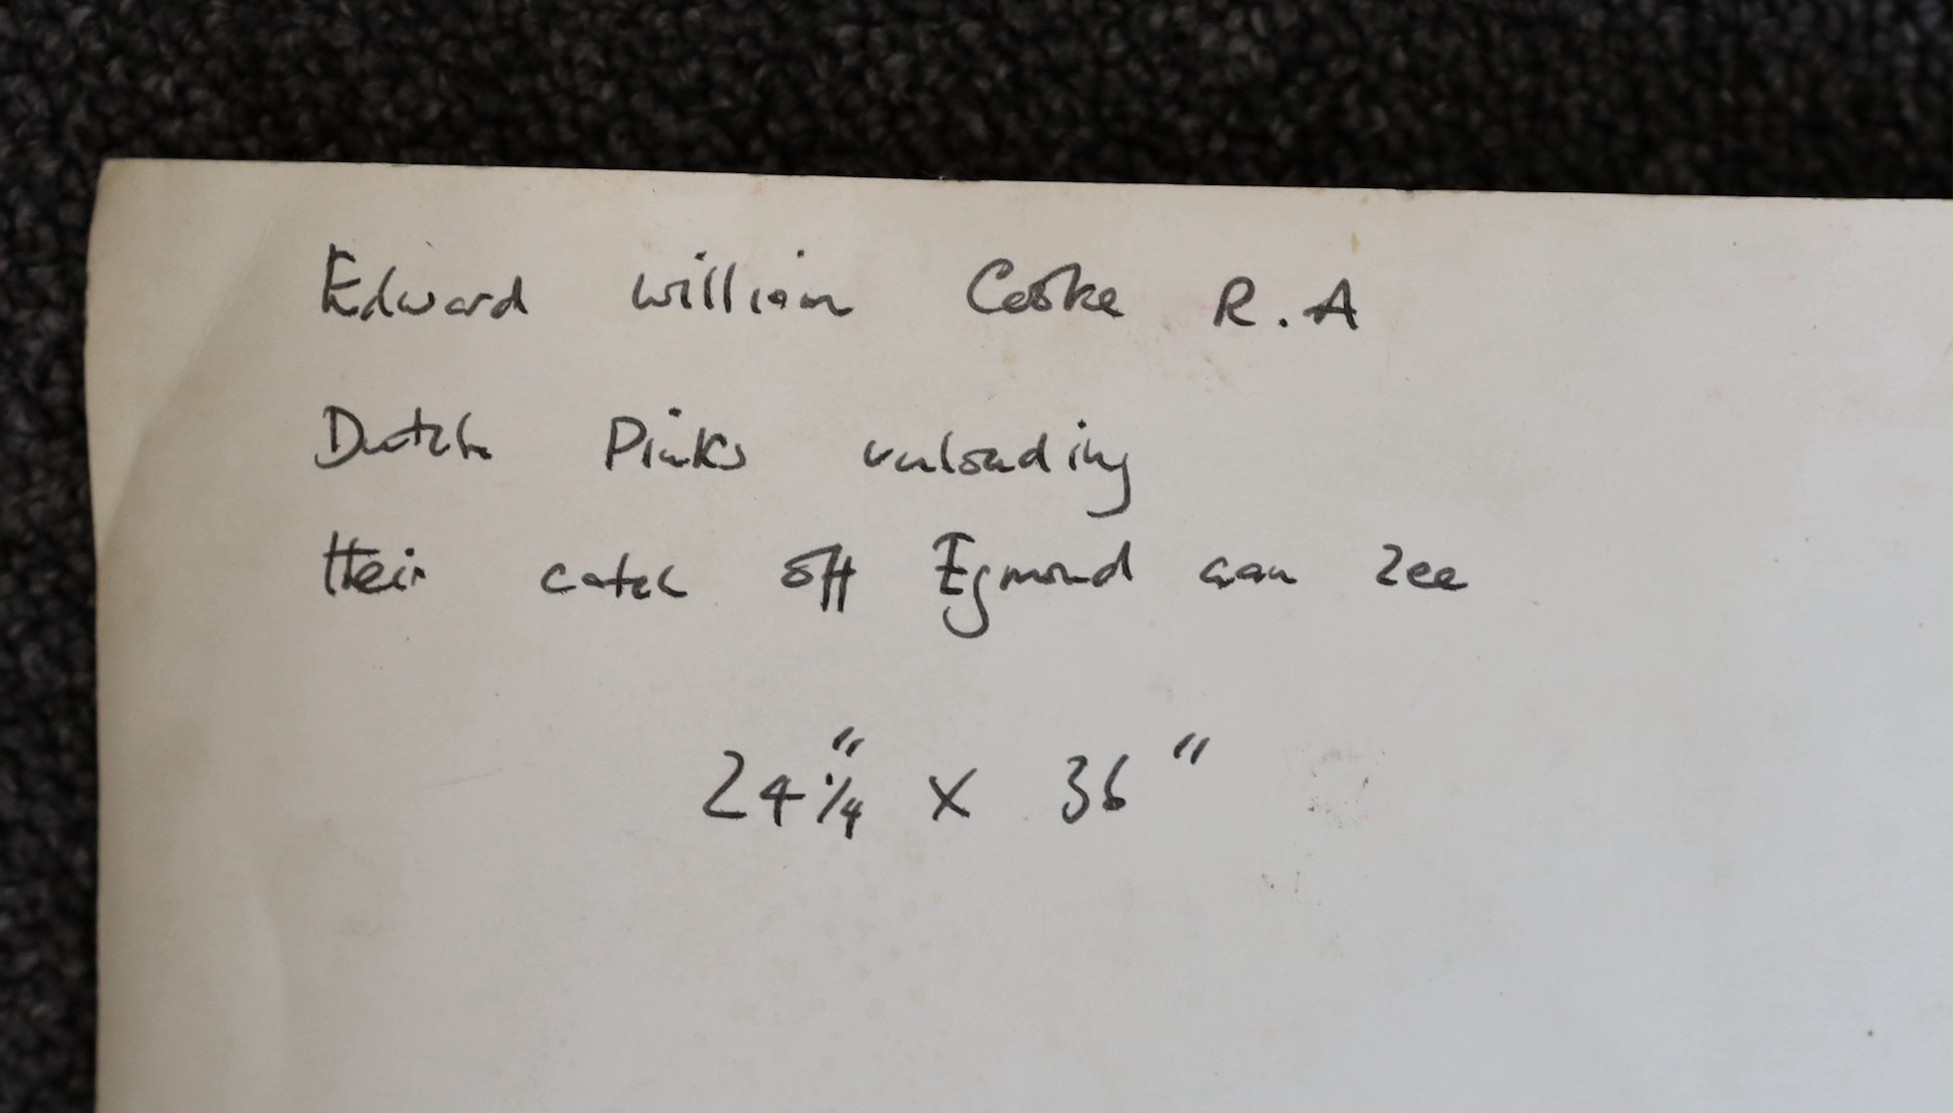 Edward William Cooke R.A
Dutch Pinks unloading
their catch off Egmond aan Zee
24 1/4" x 36"